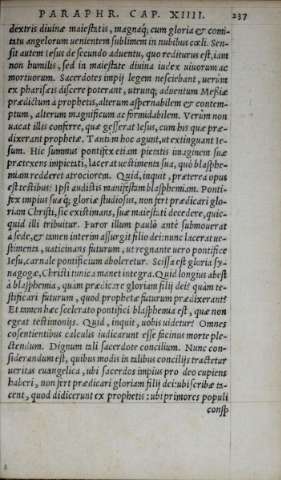 PARAPHR. CAP. XIIII. 237
dextris diuinæ maiestatis, magnaq́; cum gloria & comi-
tatu angelorum uenientem sublimem in nubibus cœli. Sen-
sit autem Iesus de secundo aduentu, quo rediturus est, iam
non humilis, sed in maiestate diuina iudex uiuorum ac
mortuorum. Sacerdotes impij legem nesciebant, uerùm
ex pharisæis discere poterant, utrunq; aduentum Messiæ
prædictum à prophetis, alterum aspernabilem & contem-
ptum, alterum magnificum ac formidabilem. Verùm non
uacat illis conferre, quæ gesserat Iesus, cum his quæ præ-
dixerant prophetæ. Tantum hoc agunt, ut extinguant Ie-
sum. Hic summus pontifex etiam pietatis imaginem suæ
prætexens impietati, lacerat uestimenta sua, quò blasphe-
miam redderet atrociorem. Quid, inquit, præterea opus
est testibus: Ipsi audistis manifestam blasphemiam. Ponti-
fex impius suæq́; gloriæ studiosus, non fert prædicari glo-
riam Christi, sic existimans, suæ maiestati decedere, quic-
quid illi tribuitur. Furor illum paulò antè submouerat
a sede, & tamen interim assurgit filio dei: nunc lacerat ue-
stimenta, uaticinans futurum, ut regnante uero pontifice
Iesu, carnale pontificium aboleretur. Scissa est gloria sy-
nagogæ, Christi tunica manet integra. Quid longius abest
à blasphemia, quàm prædicare gloriam filij dei? quàm te-
stificari futurum, quod prophetæ futurum prædixerant?
Et tamen hæc scelerato pontifici blasphemia est, quæ non
egeat testimonijs. Quid, inquit, uobis uidetur? Omnes
cõsententibus calculis iudicarunt esse facinus morte ple-
ctendum. Dignum tali sacerdote concilium. Nunc con-
siderandum est, quibus modis in talibus concilijs tractetur
ueritas euangelica, ubi sacerdos impius pro deo cupiens
haberi, non fert prædicari gloriam filij dei: ubi scribæ ta-
cent, quod didicerunt ex prophetis: ubi primores populi
consp